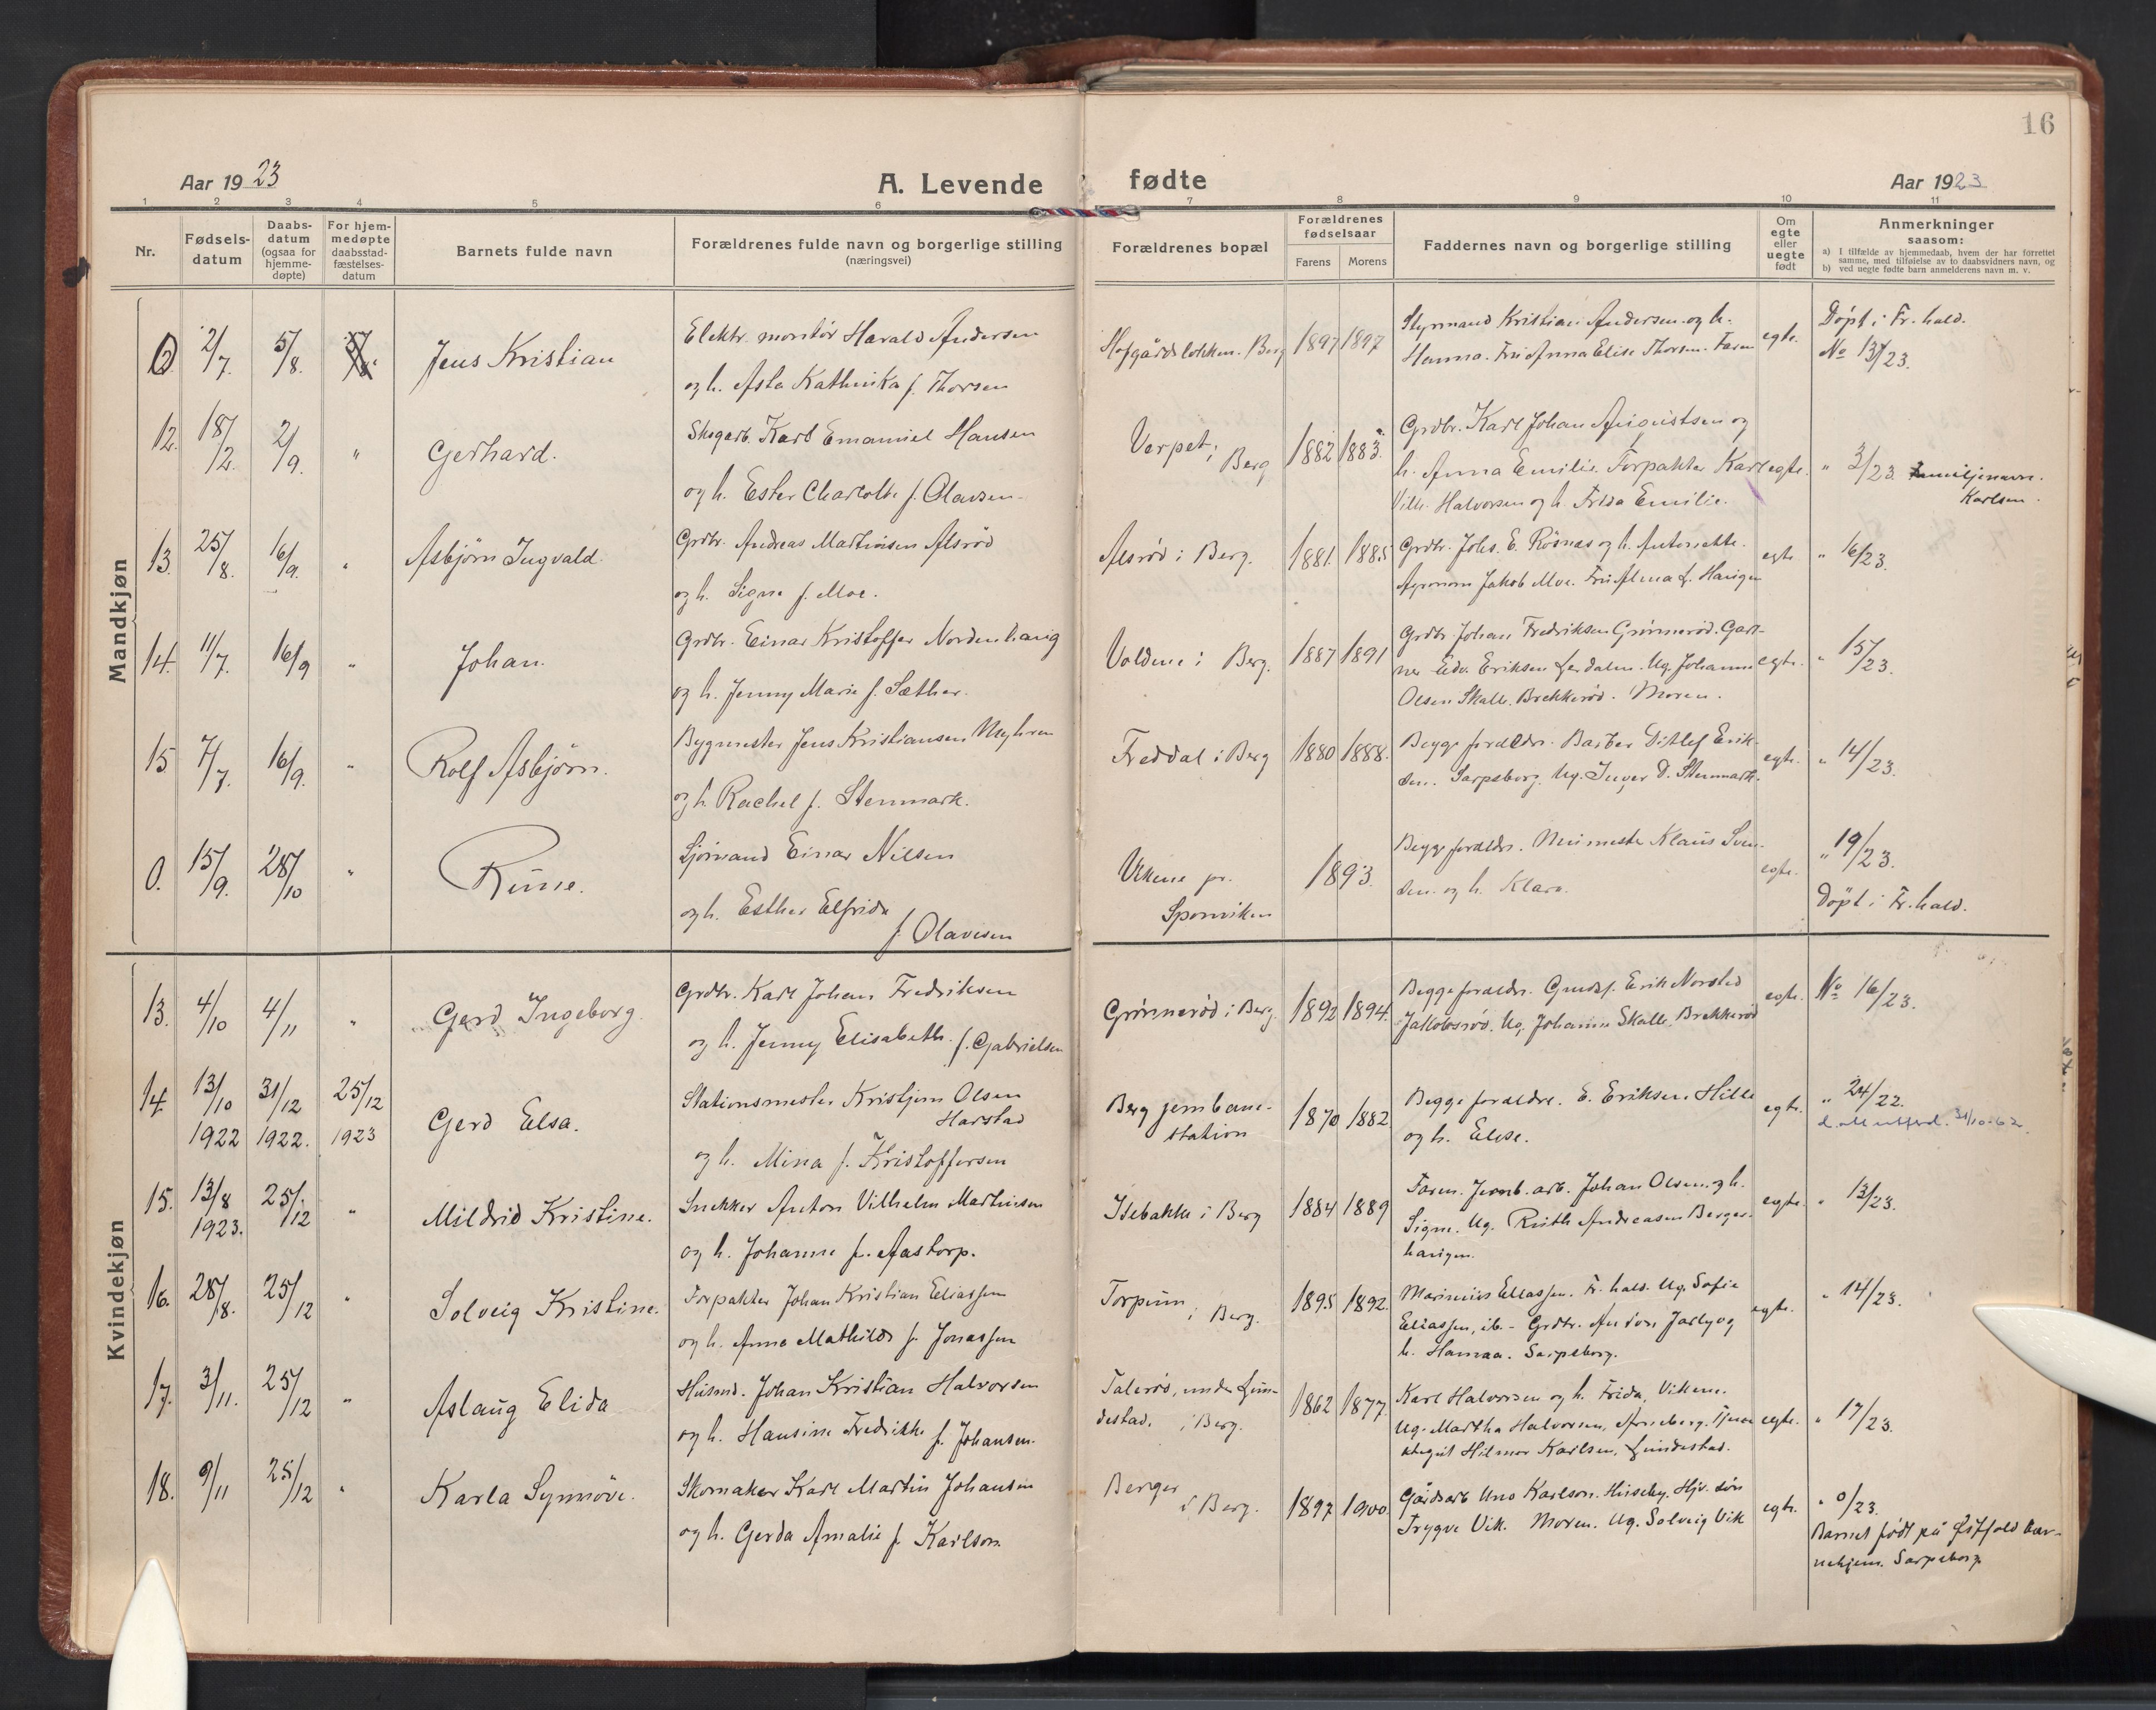 16
Aar 1923
A. Levende fødte
Aar 1923
1 2 3 4 5 6 7 8 9 10 11
Nr.
Fødsels-
datum
Daabs-
datum
(ogsaa for
hjemme-
døpte)
For hjem-
medøpte
daabsstad-
fæstelses-
datum
Barnets fulde navn
Forældrenes fulde navn og borgerlige stilling
(næringsvei)
Forældrenes bopæl
Forældrenes
fødselsaar
Farens Morens
Faddernes navn og borgerlige stilling
Om
egte
eller
uegte
født
Anmerkninger
saasom:
a) I tilfælde av hjemmedaab, hvem der har forrettet
samme, med tilføielse av to daabsvidners navn, og
b) ved uegte fødte barn anmelderens navn m. v.
Mandkjøn
2/7. 5/8. Jens Kristian
Elektr. montør Harald Andersen
og h. Asta Kathinka f. Thorsen
Berg 1897 1897
Styrmand Kristian Andersen og h.
Hanna. Fru Anna Elise Thorsen. Faren
egte.
Døpt i Fr.hald.
No 13/23.
12. 18/2. 2/9. " Gerhard.
Skogarb. Karl Emanuel Hansen
og h. Ester Charlotte f. Olavsen
Verpet i Berg 1882 1883.
Grdbr. Karl Johan Augustsen og
h. Anna Emilie. Forpakter Karl
Vilh. Halvorsen og h. Frida Emilie.
egte.
" 3/23 Familjenavn.
Karlsen.
13. 25/8. 16/9. " Asbjørn Ingvald.
Grdbr. Andreas Martinsen Alsrød
og h. Signe f. Moe.
Alsrød i Berg. 1881. 1885
Grdbr. Johs. E. Røsnæs og h. Antonette.
Agronom Jakob Moe. Fru Alma L. Haugen
egte
" 16/23.
14. 11/7. 16/9 " Johan.
Grdbr. Einar Kristoffer Nordenhaug
og h. Jenny Marie f. Sæther.
Voldene i Berg. 1887 1891
Grdbr. Johan Fredriksen Grønnerød. Gart-
ner Edv. Eriksen Lerdalen. Ug. Johanne
Olsen Skalle. Brekkerød. Moren.
egte.
" 15/23.
15 7/7. 16/9. " Rolf Asbjørn.
Bygmester Jens Kristiansen Myhren
og h. Rachel f. Stenmark.
Freddal i Berg 1880 1888.
Begge forældre. Barber Ditlef Erik-
sen. Sarpsborg. Ug. Inger D. Stenmark.
egte.
" 14/23.
0. 15/9. 28/10 " Rune.
Sjømand Einar Nilsen
og h. Esther Elfrida
f. Olavesen
Vikene pr.
Sponviken
1893.
Begge forældre. Murmester Klaus Sven-
sen og h. Klara.
egte.
" 19/23.
Døpt i Fr.hald.
Kvindekjøn
13. 4/10 4/11 " Gerd Ingeborg.
Grdbr. Karl Johan Fredriksen
og h. Jenny Elisabeth. f. Gabrielsen
Grønnerød i Berg. 1892 1894.
Begge forældre. Grdbr. Erik Norsted
Jakobsrød. Ug. Johanne Skalle. Brekkerød
egte.
No 16/23.
14. 13/10 31/12 25/12
1922 1922. 1923 Gerd Elsa.
Stationsmester Kristjern Olsen
Harstad
og h. Mina f. Kristoffersen
Berg jernbane-
station
1870 1882
Begge forældre. E. Eriksen Hille
og h. Elise.
egte.
" 24/22.
31/10-62.
15. 13/8 25/12 "
1923. Mildrid Kristine.
Snekker Anton Vilhelm Martinsen
og h. Johanne f. Aastorp.
Isebakke i Berg 1884 1889
Faren. Jernb. arb. Johan Olsen og h.
Signe. Ug. Ruth Andreasen Berger-
haugen.
egte.
" 13/23.
16. 28/8. 25/12 " Solveig Kristine.
Forpakter Johan Kristian Eliassen
og h. Anne Mathilde f. Jonassen
Torpum i Berg. 1895 1892.
Marinius Eliassen. Fr.hald. Ug. Sofie
Eliassen, ib. - Grdbr. Anton Jarly og
h. Hanna. Sarpsborg.
egte.
" 14/23.
17. 3/11. 25/12 " Aslaug Elida
Husmd. Johan Kristian Halvorsen
og h. Hansine Fredrikke f. Johansen.
Talerød, under Lun-
destad. i Berg.
1862 1877.
Karl Halvorsen og h. Frida, Vikene.
Ug. Martha Halvorsen, Arneberg. Tjene-
stegut Hilmar Karlsen, Lundestad.
egte.
" 17/23.
18. 9/11 25/12 " Karla Synnøve.
Skomaker Karl Martin Johansen
og h. Gerda Amalie f. Karlson
Berger
i Berg.
1897 1900.
Gårdsarb Uno Karlson. Huseby. Hjv. søn
Trygve Vik. Moren. Ug. Solveig Vik
egte.
" 0/23.
Barnet født på Østfold bar-
nehjem. Sarpsborg